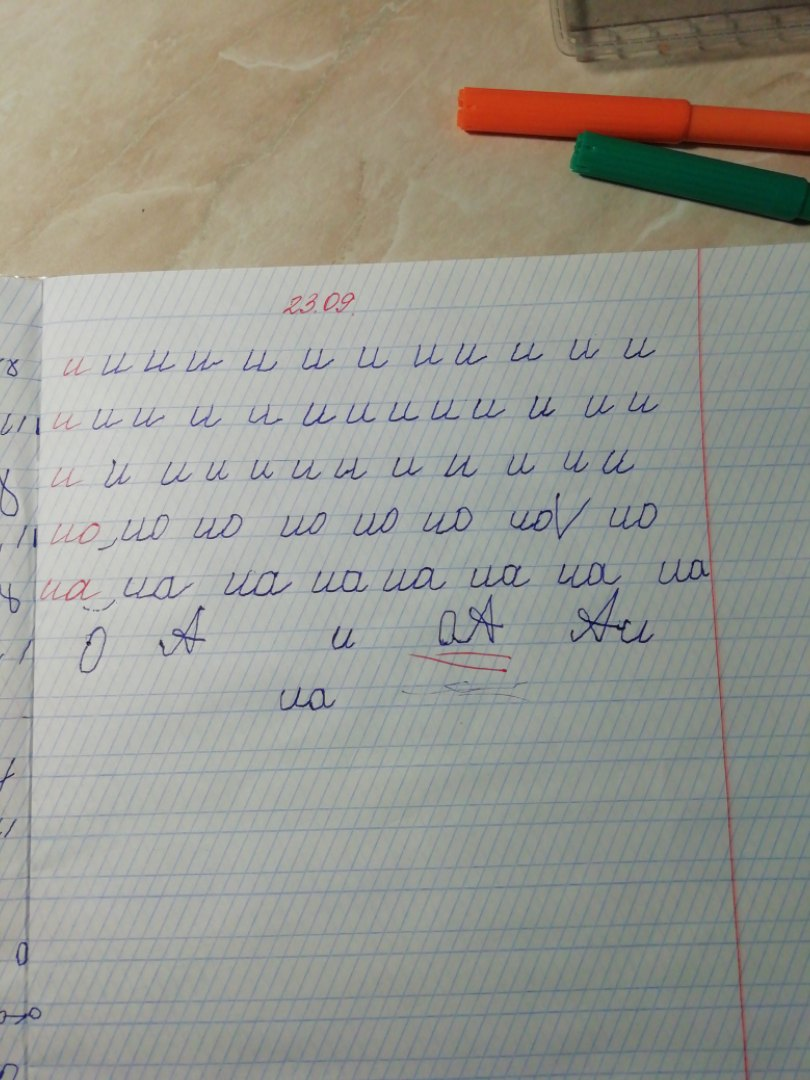 23.09.
и и и и и и и и и и и и
и и и и и и и и и и и и и
и и и и и и и и и и и и
ио, ио ио ио ио ио ио√ ио
иа, иа иа иа иа иа иа иа
О А и оА Аи
иа